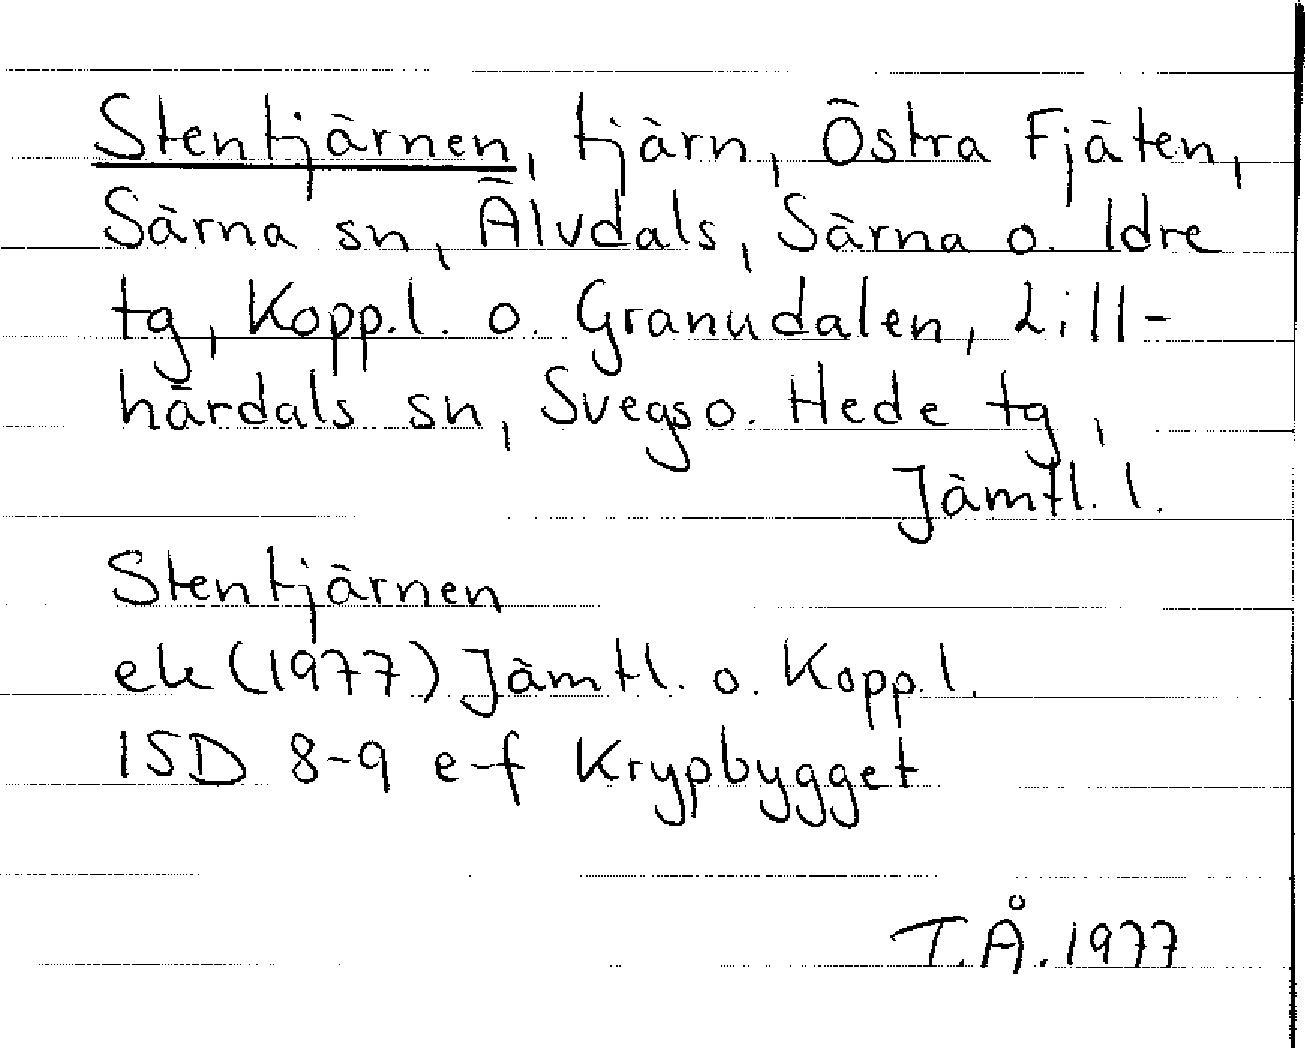 Stentjärnen, tjärn, Östra Fjäten,
Särna sn, Älvdals, Särna o. Idre
tg, Kopp.l. o. Granudalen, Lill-
härdals sn, Svegs o. Hede tg,
Jämtl. l.
Stentjärnen
ek (1977) Jämtl. o. Kopp.l.
15D 8-9 e-f Krypbygget
T.Å. 1977